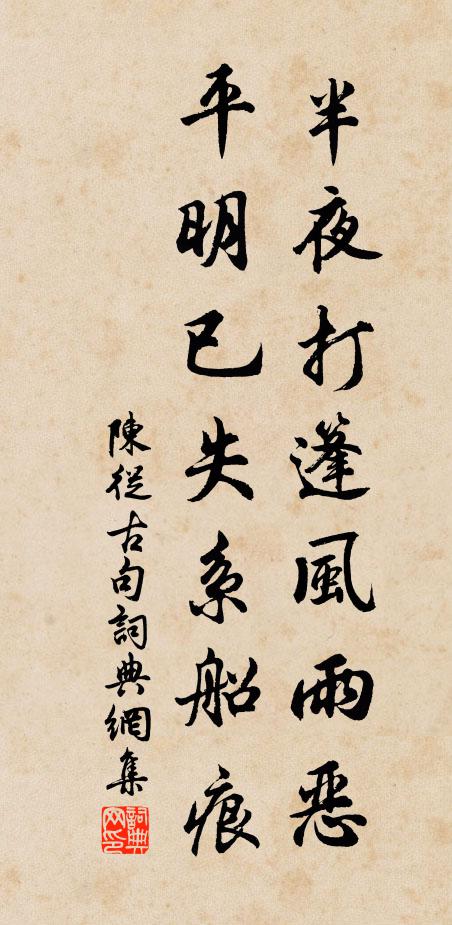 半夜打篷風雨惡
平明已失系船痕
陳從古句詞典網集
詞典網印